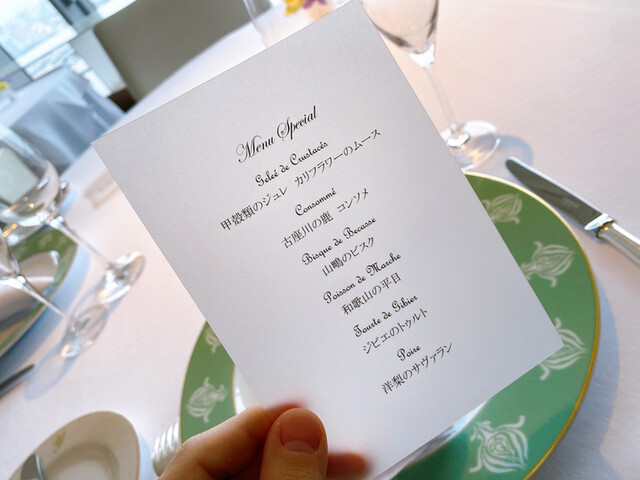 Menu Special
Geleé de Crustacés
甲殻類のジュレ カリフラワーのムース
Consommé
古座川の鹿 コンソメ
Bisque de Becasse
山鴫のビスク
Poisson de Marche
和歌山の平目
Tourte de Gibier
ジビエのトゥルト
Poire
洋梨のサヴァラン